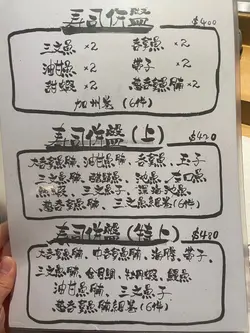 壽司併盤 $400
三文魚 ×2 吞拿魚 ×2
油甘魚 ×2 帶子 ×2
甜蝦 ×2 蔥吞拿魚腩 ×2
加州卷 (6件)
壽司併盤 (上) $420
大吞拿魚腩、油甘魚腩、吞拿魚、玉子
三文魚腩、醋鯖魚、池魚、左口魚
三文魚子、深海池魚
蔥吞拿魚腩、三文魚細卷 (6件)
壽司併盤 (特上) $480
大吞拿魚腩、中吞拿魚腩、海膽、帶子、
三文魚腩、金目鯛、牡丹蝦、鰻魚
油甘魚腩、三文魚子
蔥吞拿魚腩細卷 (6件)